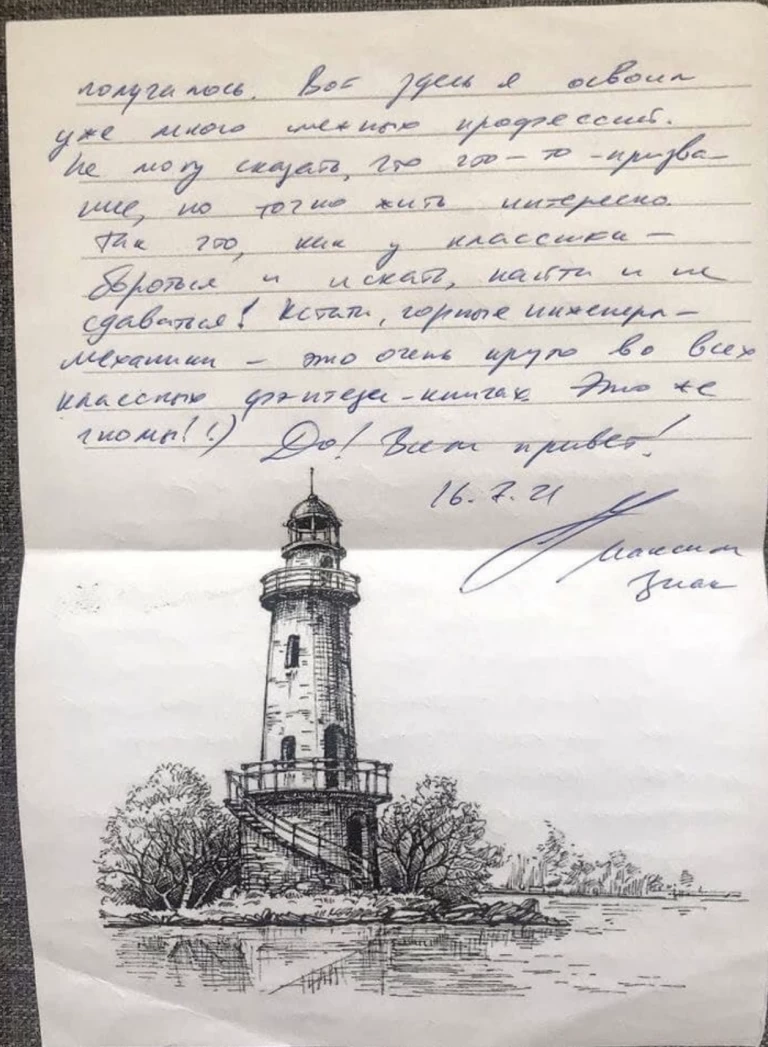 получалось. Вот здесь я освоил
уже много смежных профессий.
Не могу сказать, что что-то - призва-
ние, но точно жить интересно.
Так что, как у классика -
бороться и искать, найти и не
сдаваться! Кстати, горные инженеры-
механики - это очень круто во всех
классных фэнтези-книгах. Это же
гномы! :) До! Всем привет!
16.7.21
Максим
Знак